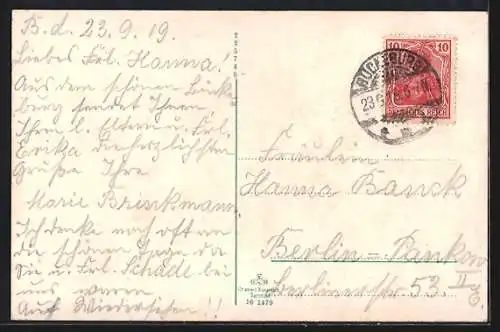 B.d. 23.9.19.
Liebes Frl. Hanna!
Aus dem schönen Bücke
berg sendet Ihnen,
Ihren l. Eltern u. Frl.
Erika die herzlichsten
Grüße Ihre
Marie Brinkmann
Ich denke noch oft an
die schönen Tage da
Sie u. Frl. Schade bei
uns waren
Auf Wiedersehen!!
10 10
BÜCKEBURG
23.9
DEUTSCHES REICH
Fräulein
Hanna Banck
Berlin-Pankow
Berlinerstr 53. II